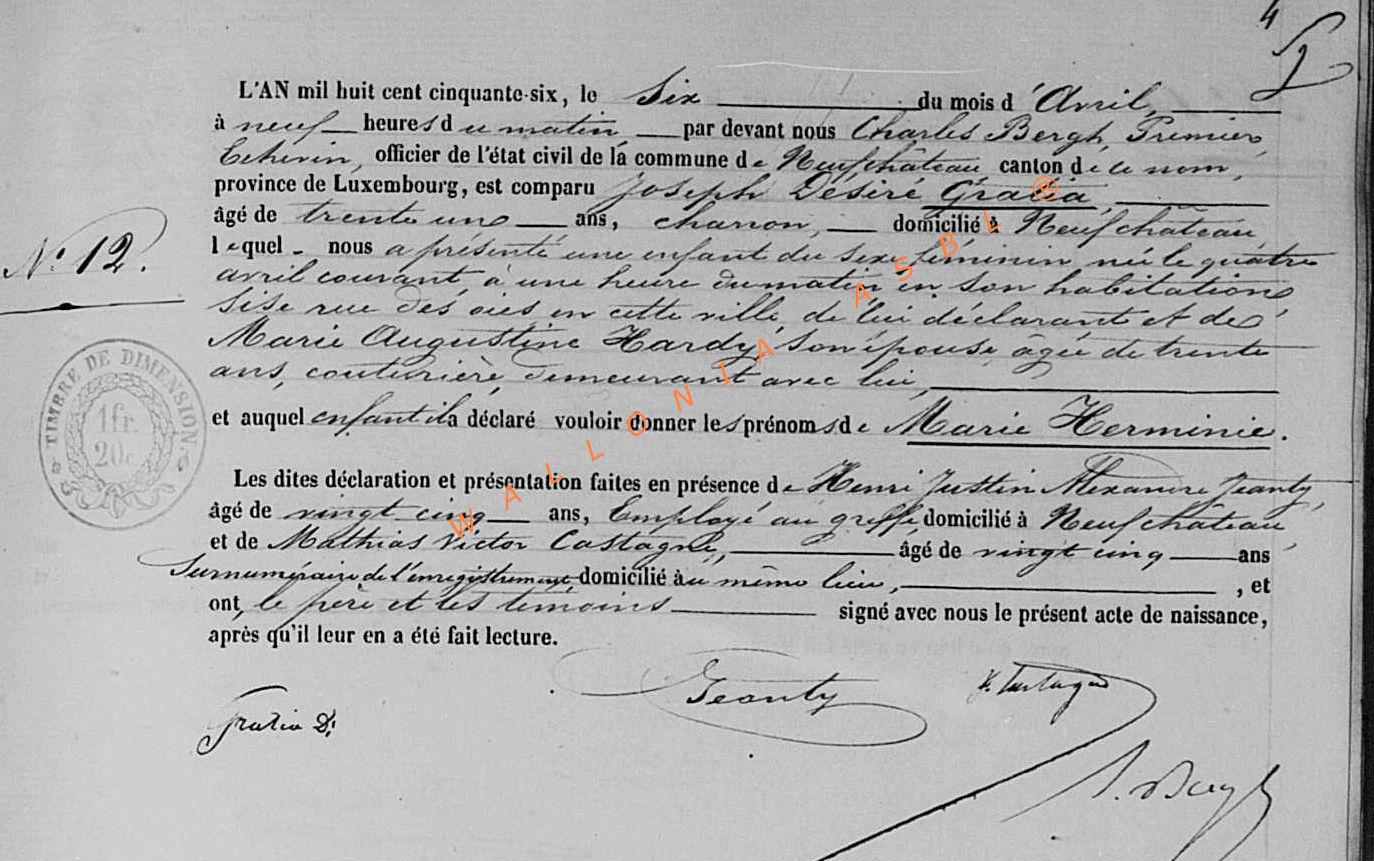 4
L'AN mil huit cent cinquante-six, le Six du mois d'Avril,
à neuf heures du matin par devant nous Charles Bergh, Premier
Echevin, officier de l'état civil de la commune de Neufchâteau, canton de ce nom,
province de Luxembourg, est comparu Joseph Désiré Gratia,
âgé de trente une ans, charron, domicilié à Neufchâteau,
N° 12.
lequel nous a présenté une enfant du sexe féminin née le quatre
avril courant, à une heure du matin en son habitation
sise rue des oies en cette ville, de lui déclarant et de
Marie Augustine Hardy, son épouse, âgée de trente
ans, couturière, demeurant avec lui,
TIMBRE DE DIMENSION
1 fr.
20c
et auquel enfant il a déclaré vouloir donner les prénoms de Marie Herminie.
Les dites déclaration et présentation faites en présence de Henri Justin Alexandre Jeanty,
âgé de vingt cinq ans, Employé au greffe, domicilié à Neufchâteau,
et de Mathias Victor Castagne, âgé de vingt cinq ans
Surnuméraire de l'enregistrement domicilié au même lieu, , et
ont, le père et les témoins signé avec nous le présent acte de naissance,
après qu'il leur en a été fait lecture.
Jeanty
Gratia D.
WALLONIA ASBL ®